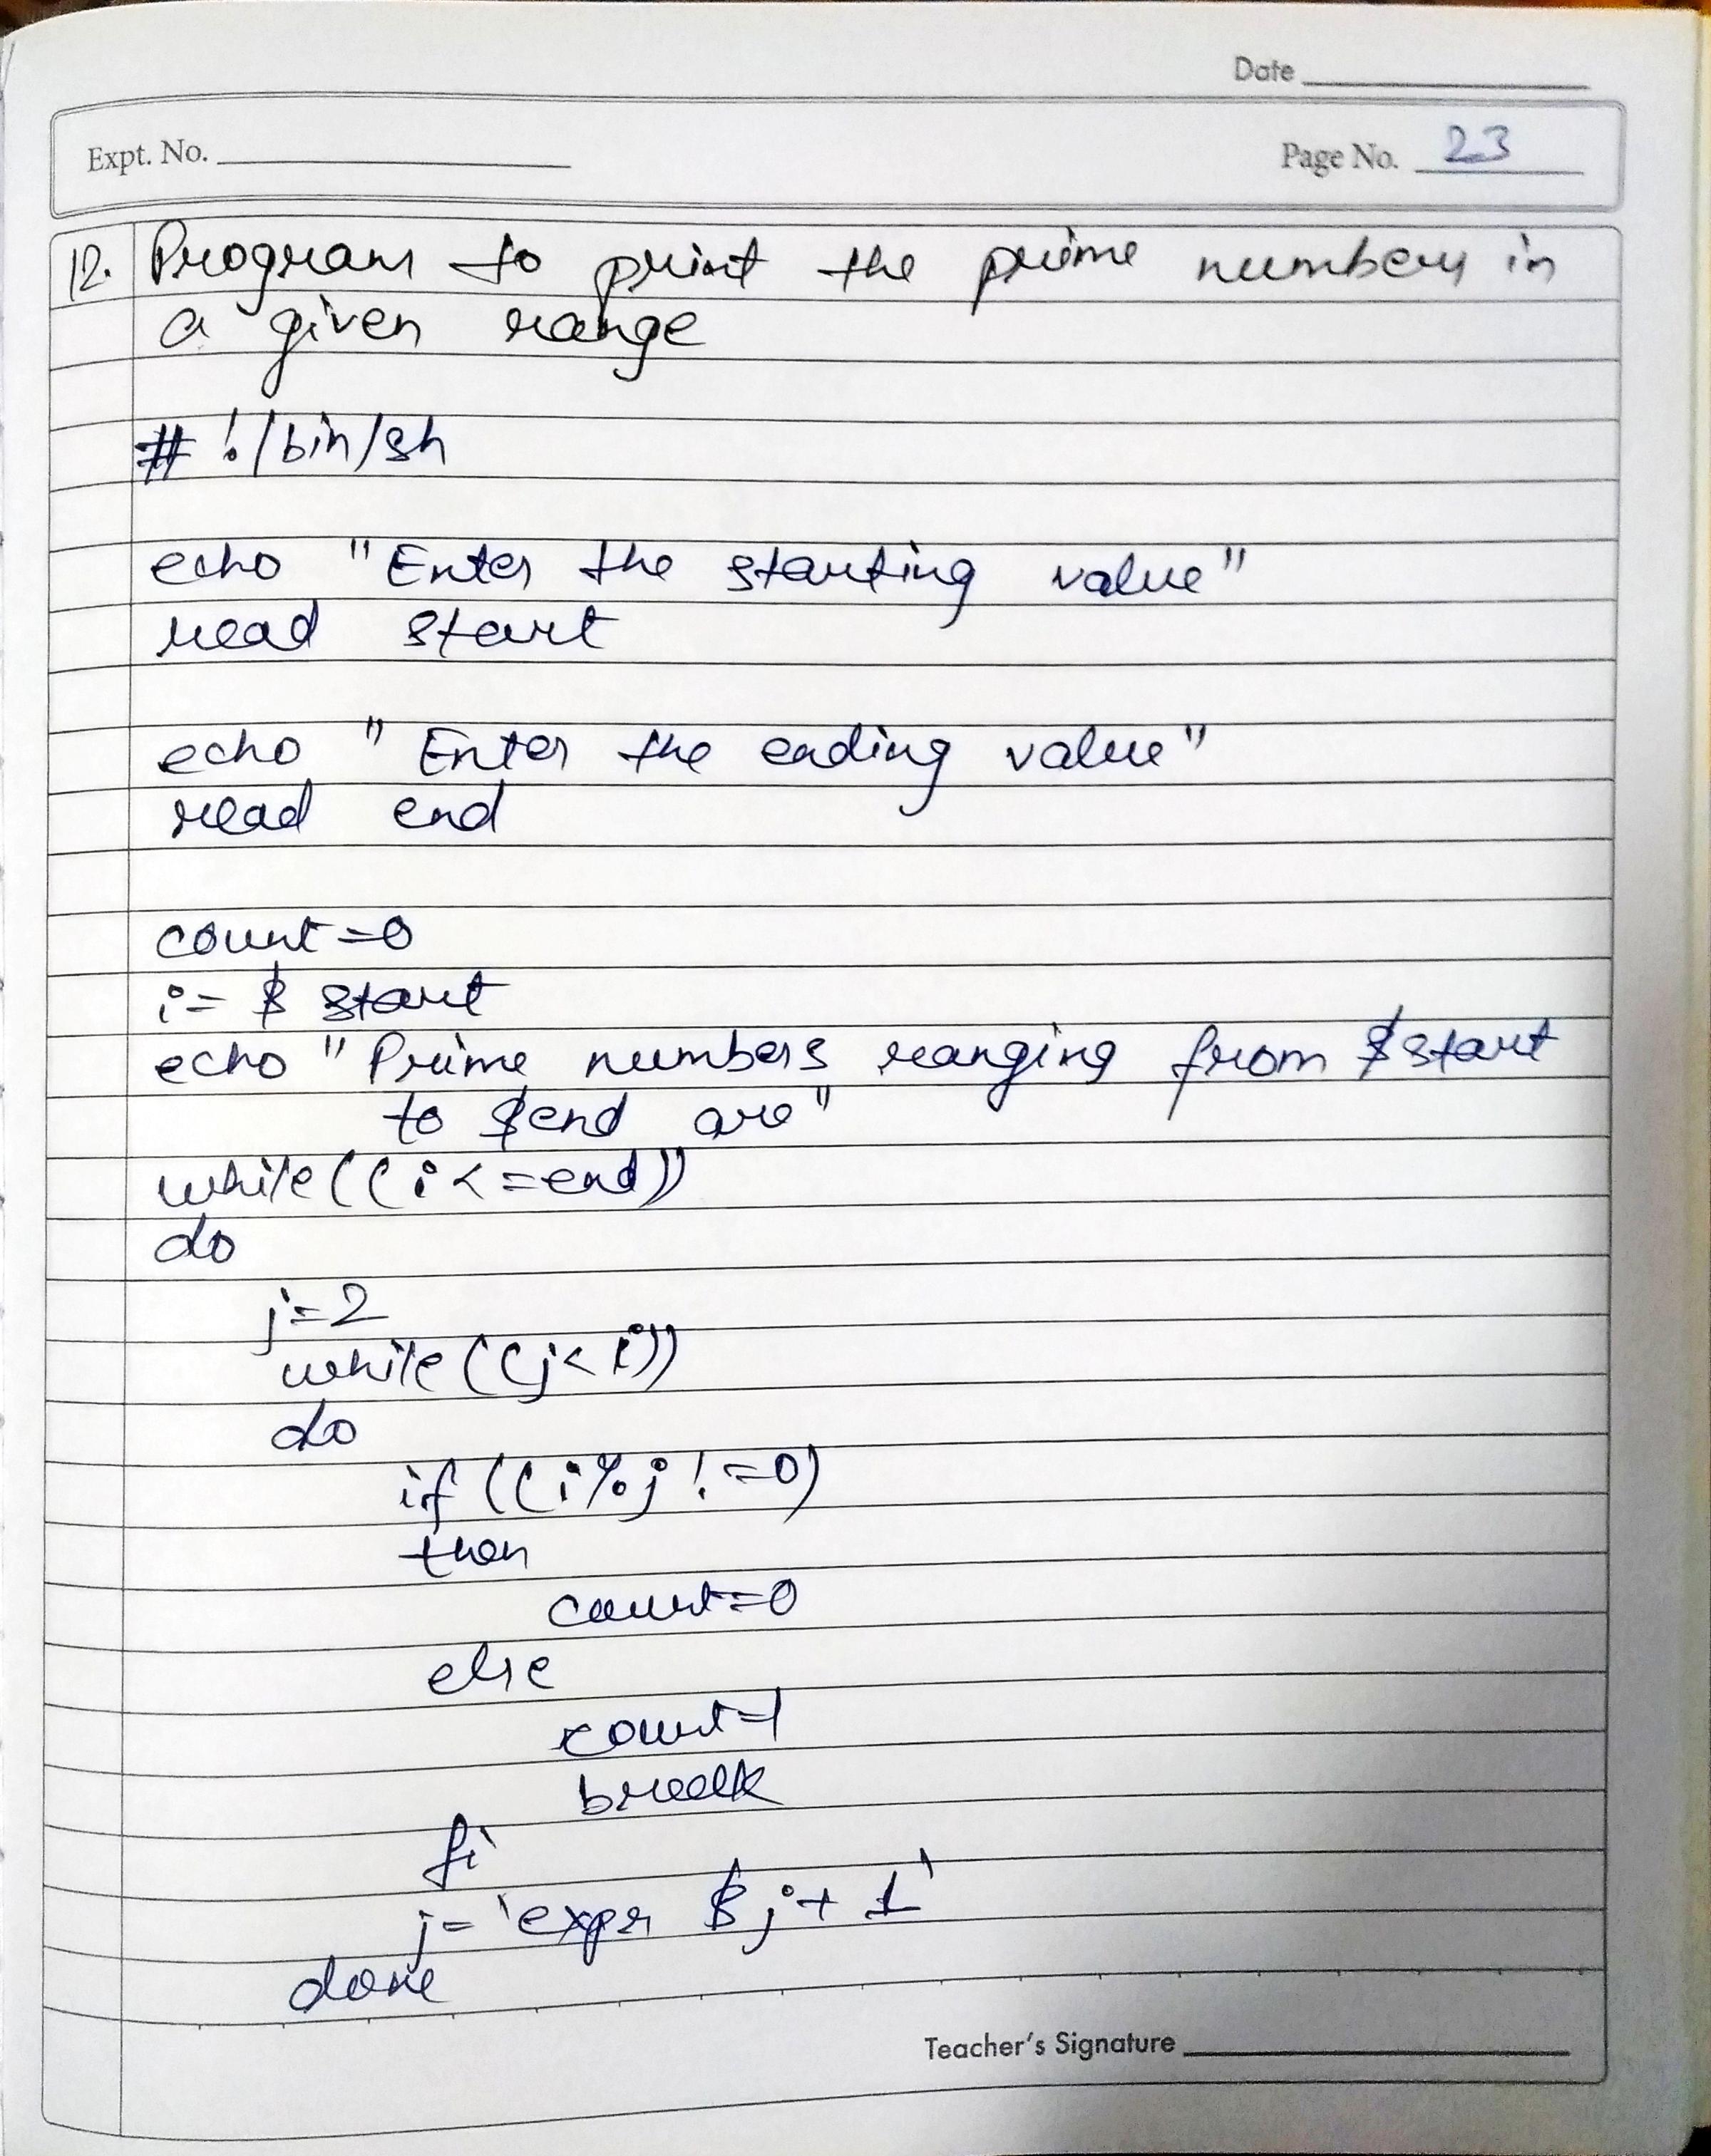 Date
Expt. No.
Page No. 23
12. Program to print the prime numbers in
a given range
#!/bin/sh
echo "Enter the starting value"
read start
echo "Enter the ending value"
read end
count=0
i=$ start
echo "Prime numbers ranging from $start
to $end are"
while((i<=end))
do
j=2
while((j<i))
do
if ((i%j!=0)
then
count=0
else
count=1
break
fi
j=`expr $j+1`
done
Teacher's Signature